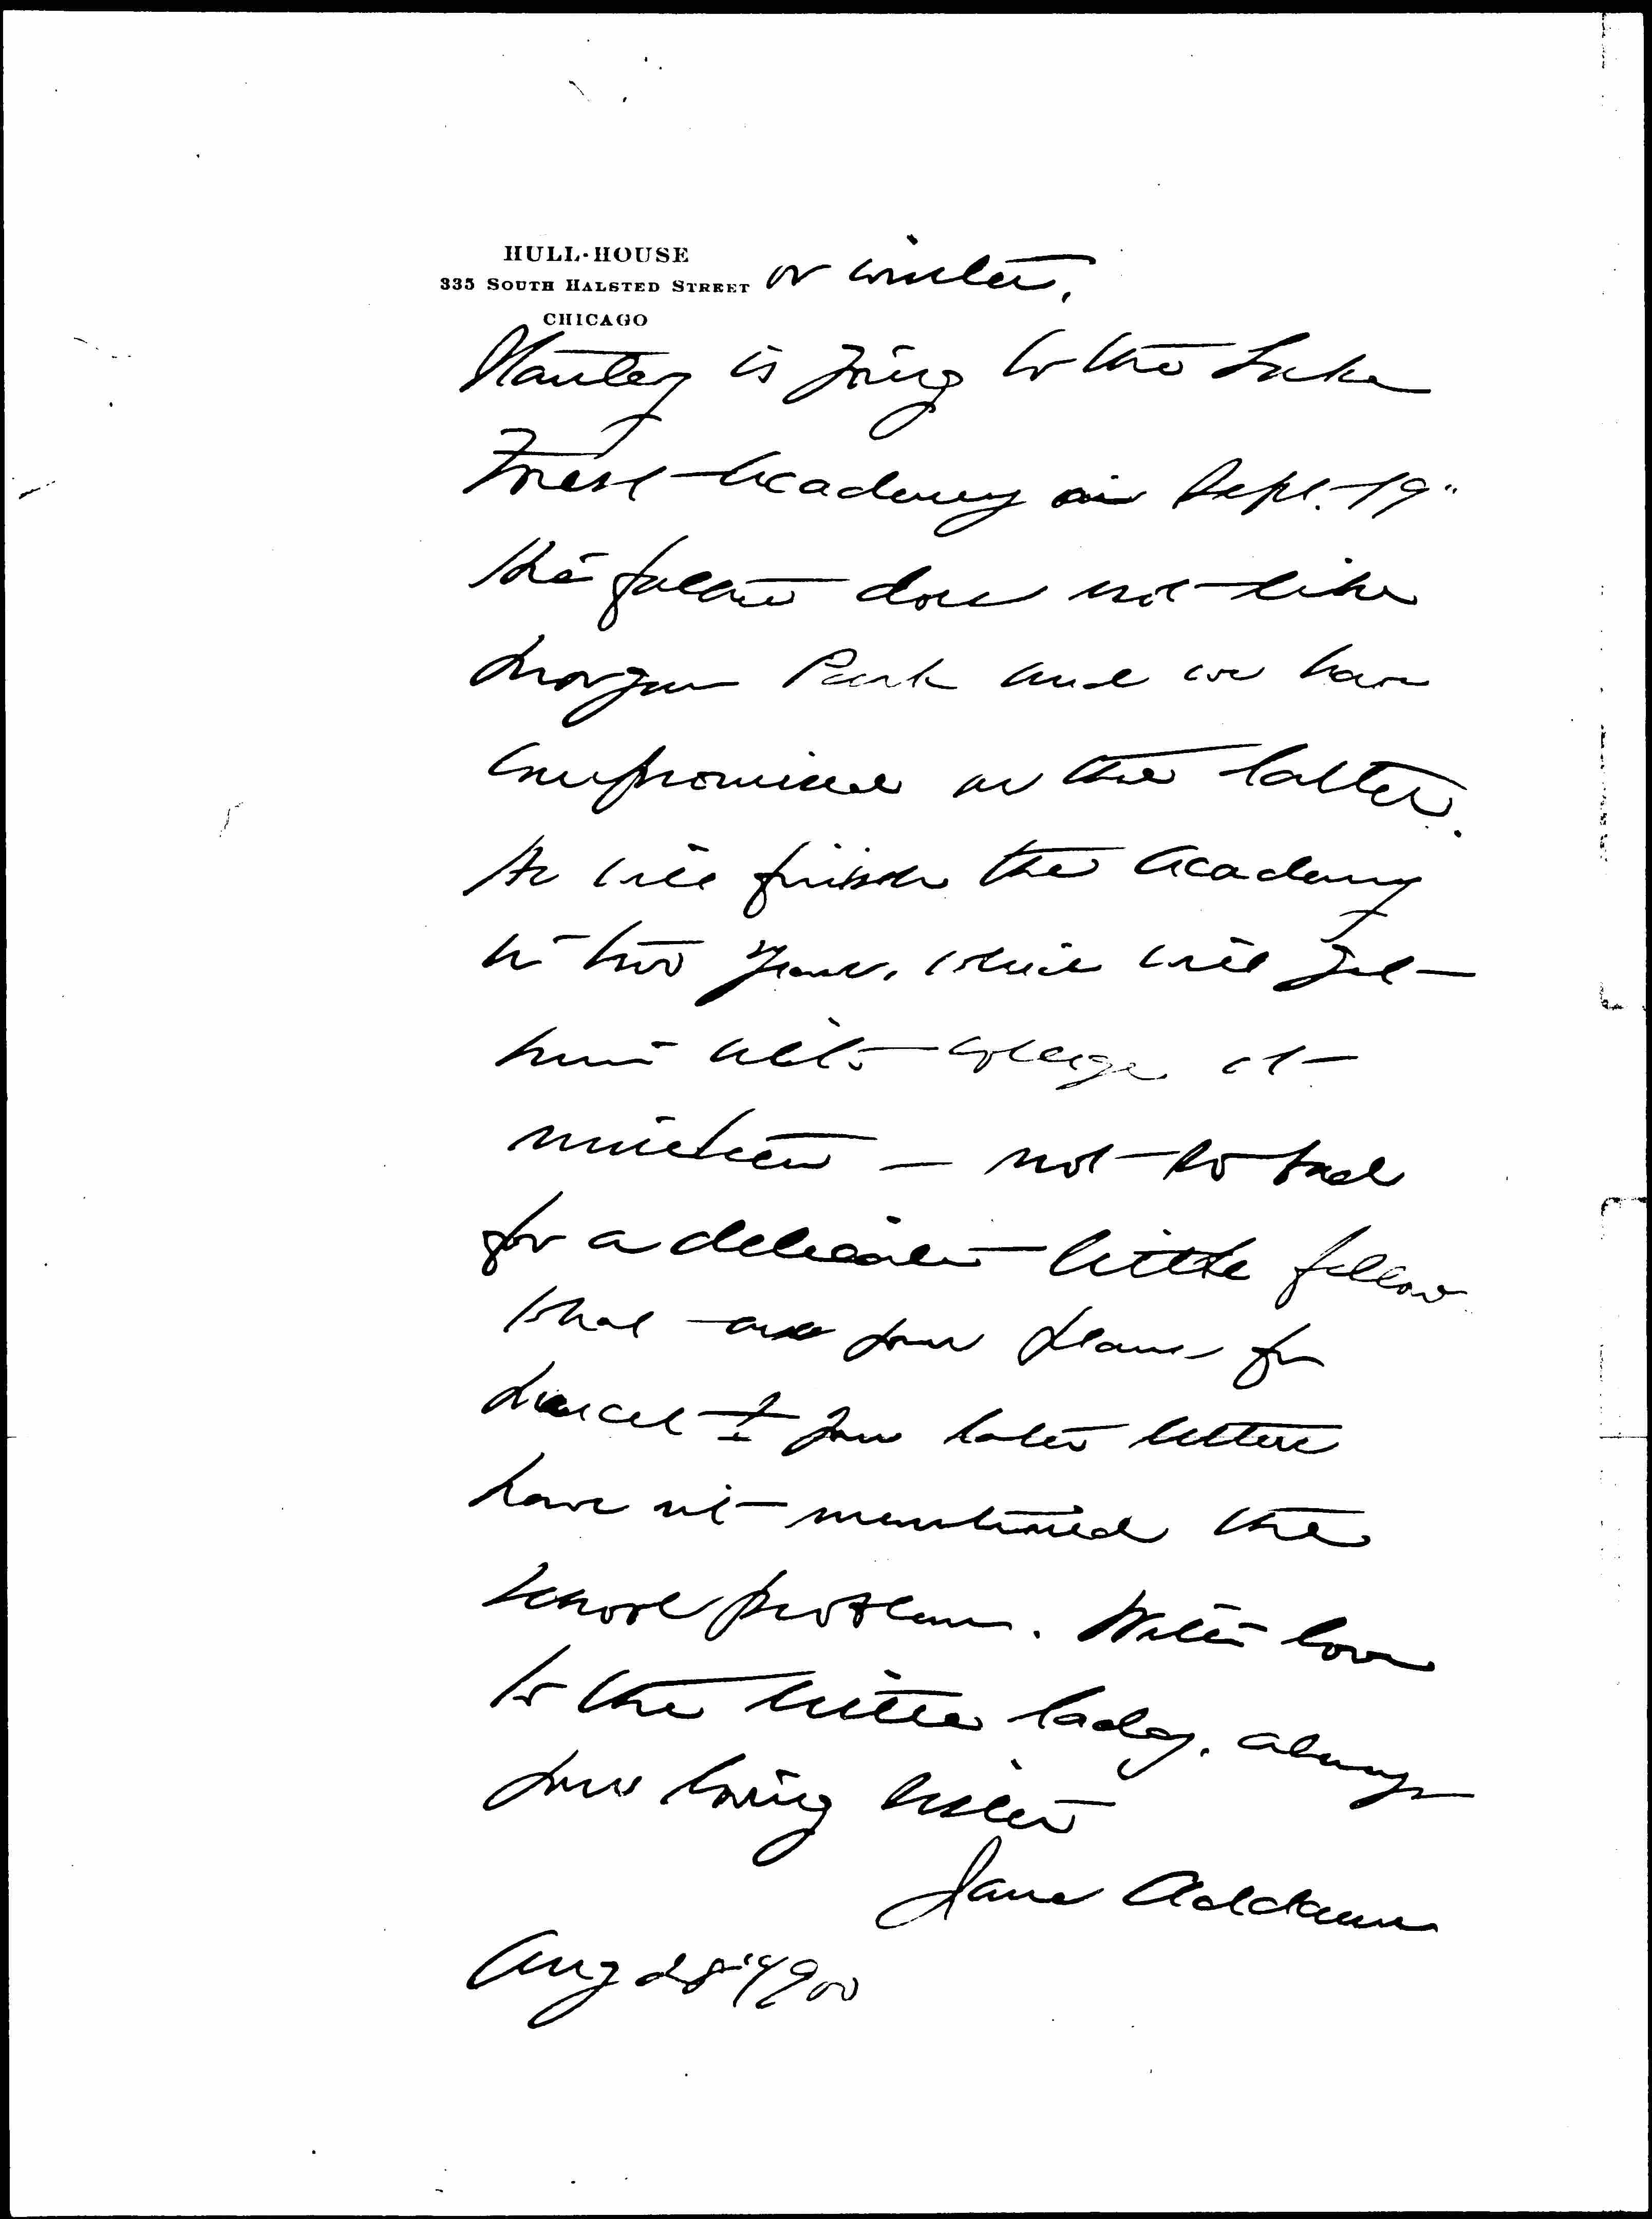 HULL-HOUSE
335 SOUTH HALSTED STREET
CHICAGO
or winter.
Stanley is going to the Lake
Forest Academy on Sept. 19"
the father does not like
Morgan Park and we have
compromised on the latter.
He will finish the Academy
in two years, which will get
him into college at
nineteen — not so bad
for a delicate little fellow
What are your plans for
Marcet? Your later letters
have not mentioned the
school problem. With love
to the little lady, always
your loving sister
Jane Addams
Aug 28" 1900